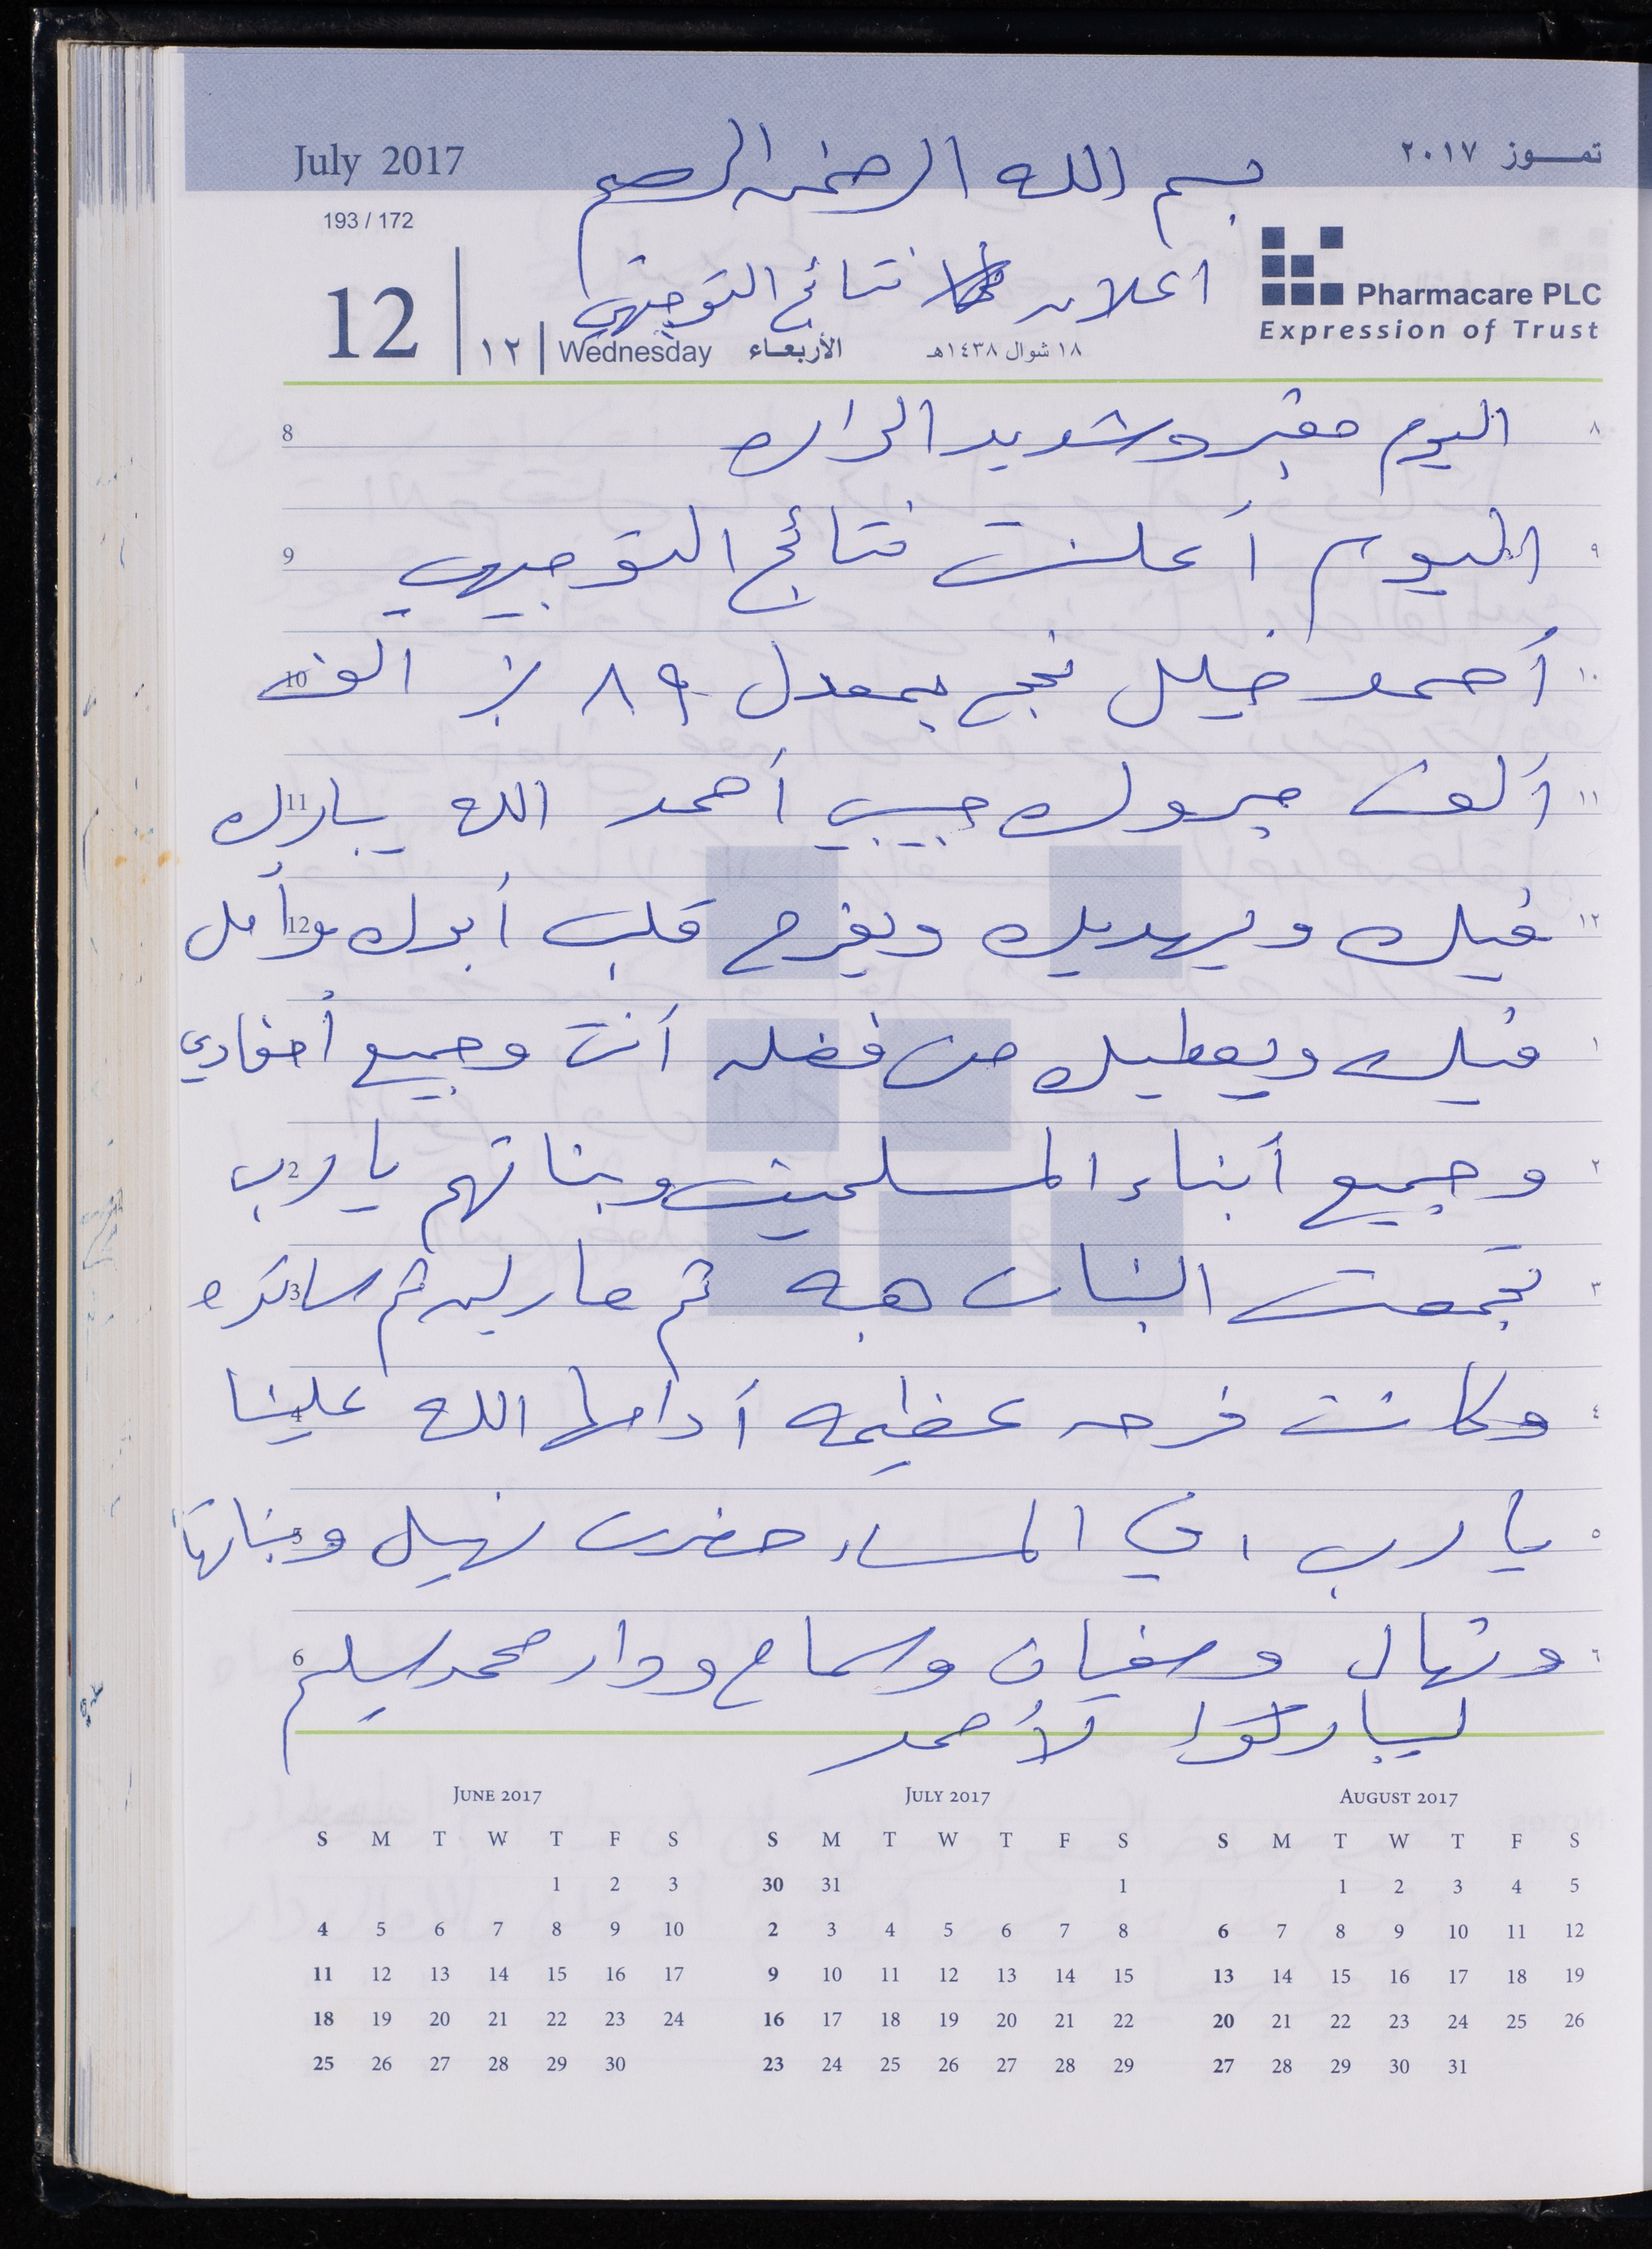 July 2017
تمـــوز ٢٠١٧
بسم الله الرحمن الرحيم
193 / 172
Pharmacare PLC
Expression of Trust
اعلان نتائج التوجيهي
12
١٢
Wednesday
الأربعـاء
١٨ شوال ١٤٣٨هـ
8 اليوم مغبر وشديد الحراره ٨
9 اليوم أعلنت نتائج التوجيهي ٩
10 أحمد خليل نجح بمعدل ٨٩ ٪ الف ١٠
11 ألف مبروك حبيبي أحمد الله يبارك ١١
12 فيك ويهديك ويفرح قلب أبوك وأمك ١٢
فيك ويعطيك من فضله أنت وجميع أحفادي ١
2 وجميع أبناء المسلمين وبناتهم يا رب ٢
3 تجمعت البنات هبه ثم مارلين ثم ساندره ٣
4 وكانت فرحه عظيمه أدامها الله علينا ٤
5 يا رب، في المساء حضرت نهيل وبناتها ٥
6 ونهال وسفيان وسماح ودار محمد سليم ٦
ليباركوا لأحمد
JUNE 2017
S M T W T F S
1 2 3
4 5 6 7 8 9 10
11 12 13 14 15 16 17
18 19 20 21 22 23 24
25 26 27 28 29 30
JULY 2017
S M T W T F S
30 31 1
2 3 4 5 6 7 8
9 10 11 12 13 14 15
16 17 18 19 20 21 22
23 24 25 26 27 28 29
AUGUST 2017
S M T W T F S
1 2 3 4 5
6 7 8 9 10 11 12
13 14 15 16 17 18 19
20 21 22 23 24 25 26
27 28 29 30 31